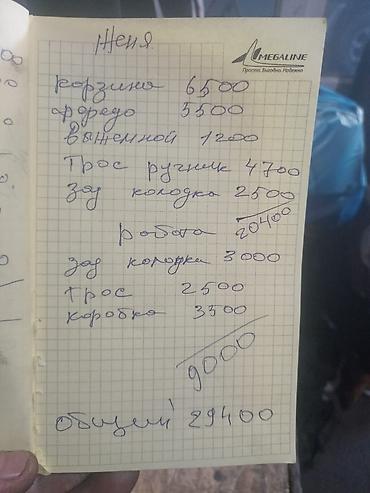 Женя
MEGALINE
Просто. Выгодно. Надежно
корзина 6500
фередо 5500
выжемной 1200
Трос ручник 4700
Зад колодка 2500
20400
работа
зад колодка 3000
трос 2500
коробка 3500
9000
общий 29400